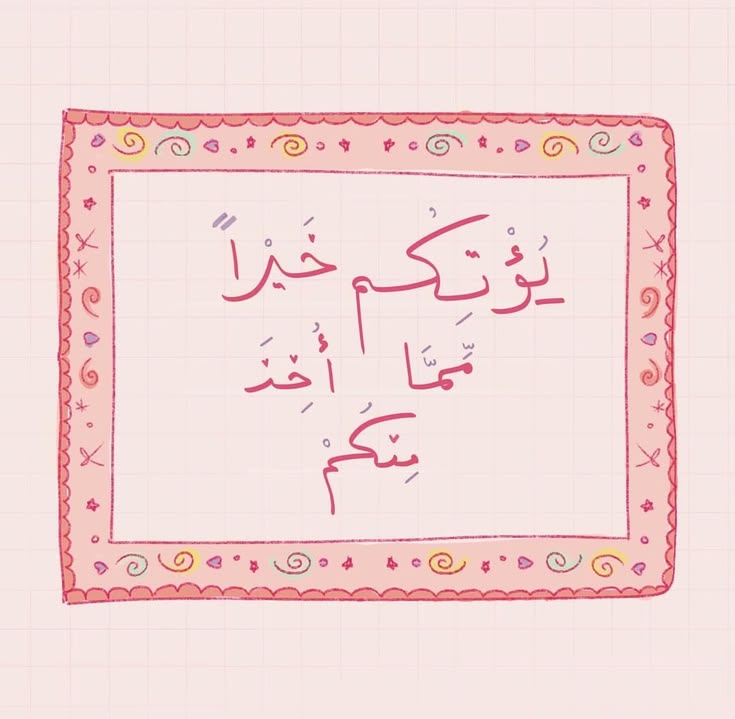 يُؤْتكُم خَيْراً
مَّمَّا أُخِذَ
مِنكُمْ